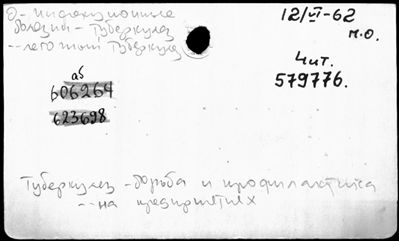 О - инфекционные
болезни - Туберкулез
-- легочный Туберкулез
12/VI-62
М.О.
Чит.
579776.
аб
606264
623698
Туберкулез - борьба и профилактика
-- на предприятиях